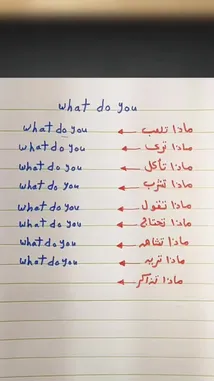 what do you
what do you ← ماذا تلعب
what do you ← ماذا ترى
what do you ← ماذا تأكل
what do you ← ماذا تشرب
what do you ← ماذا تقول
what do you ← ماذا تحتاج
what do you ← ماذا تشاهد
what do you ← ماذا تريد
← ماذا تذاكر